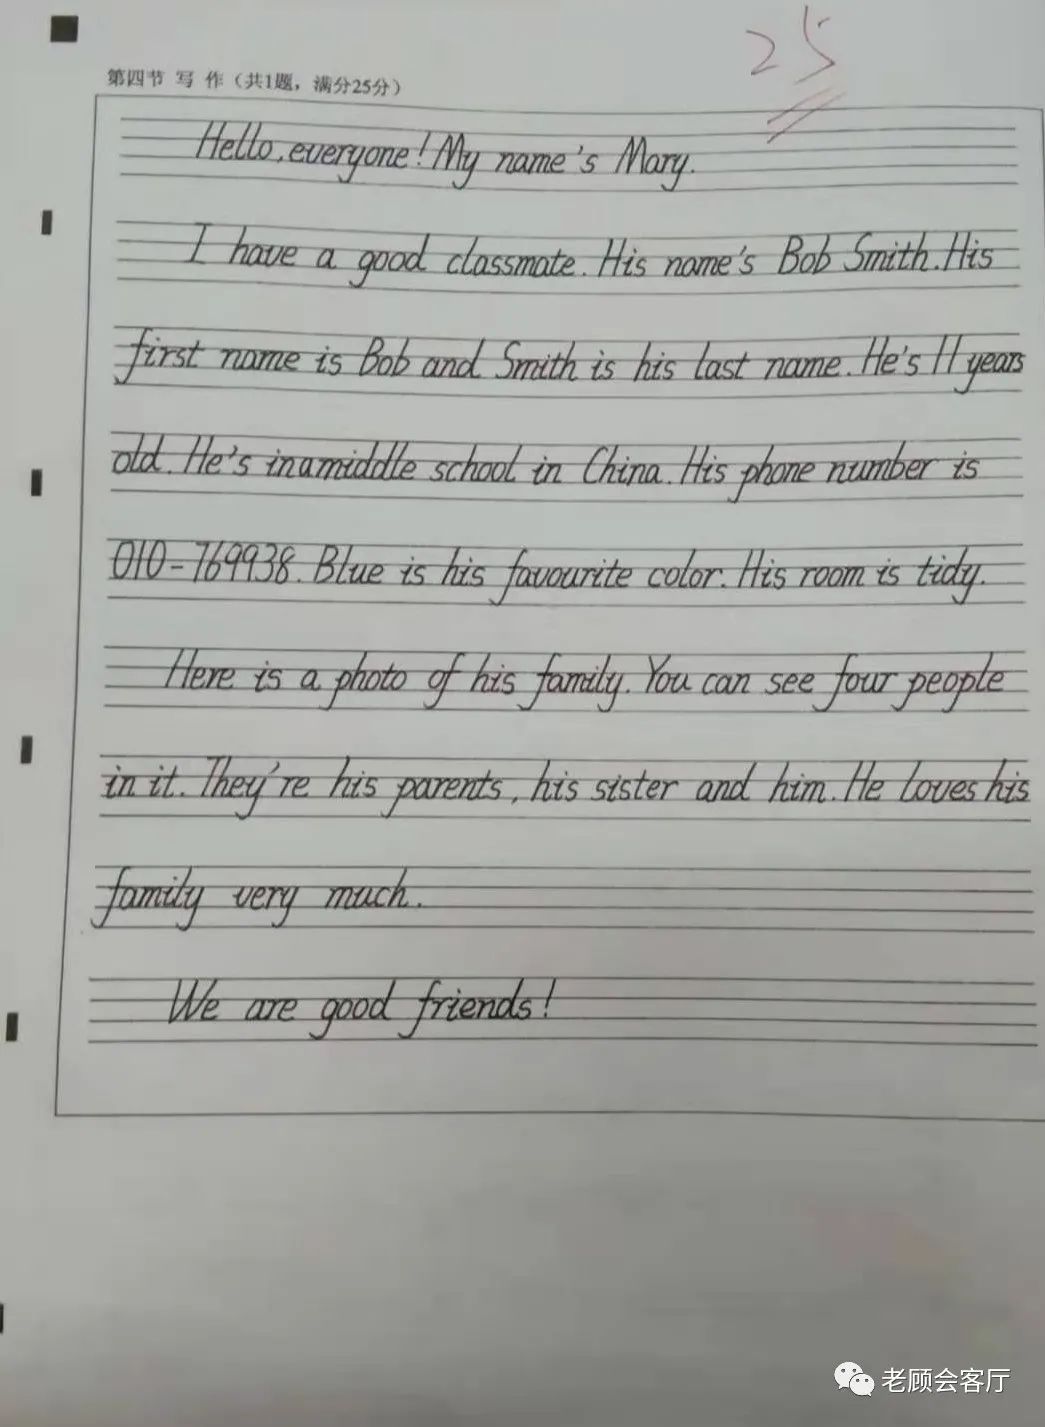 25
第四节 写 作（共1题，满分25分）
Hello, everyone! My name's Mary.
I have a good classmate. His name's Bob Smith. His
first name is Bob and Smith is his last name. He's 11 years
old. He's in a middle school in China. His phone number is
010-769938. Blue is his favourite color. His room is tidy.
Here is a photo of his family. You can see four people
in it. They're his parents, his sister and him. He loves his
family very much.
We are good friends!
老顾会客厅